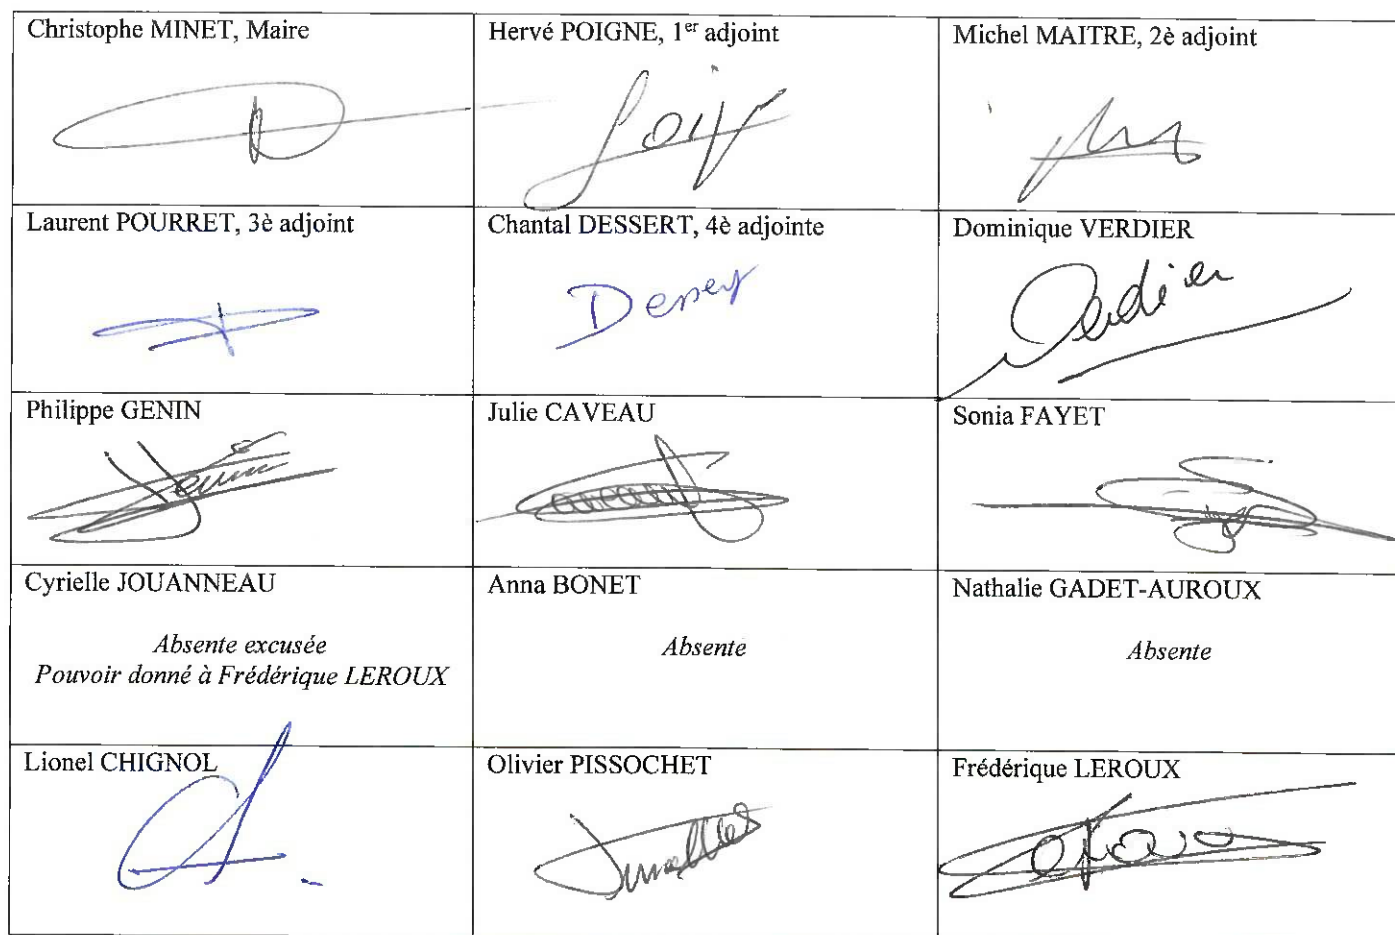 Christophe MINET, Maire
Hervé POIGNE, 1er adjoint
Michel MAITRE, 2è adjoint
Laurent POURRET, 3è adjoint
Chantal DESSERT, 4è adjointe
Dessert
Dominique VERDIER
Verdier
Philippe GENIN
Julie CAVEAU
Sonia FAYET
Cyrielle JOUANNEAU
Absente excusée
Pouvoir donné à Frédérique LEROUX
Anna BONET
Absente
Nathalie GADET-AUROUX
Absente
Lionel CHIGNOL
Olivier PISSOCHET
Frédérique LEROUX